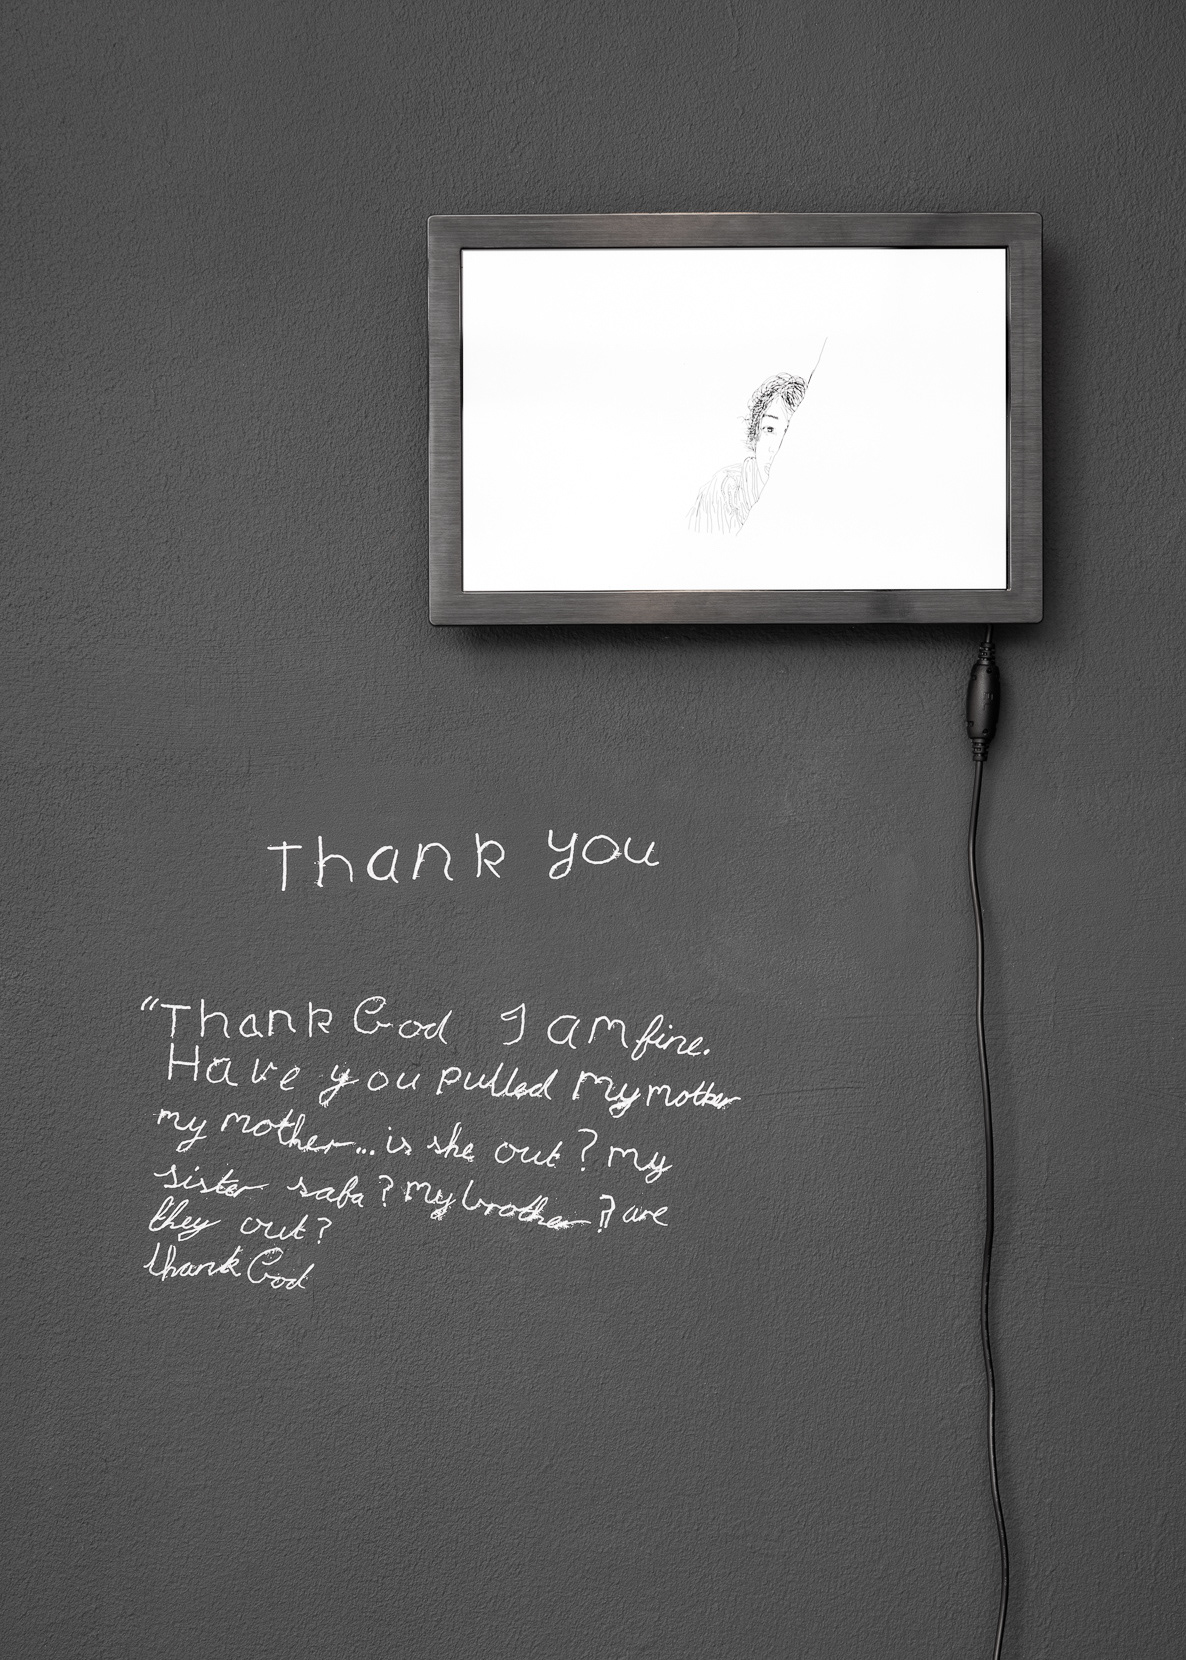 Thank you
"Thank God I am fine.
Have you pulled my mother
my mother... is she out? my
sister safa? my brother? are
they out?
thank God